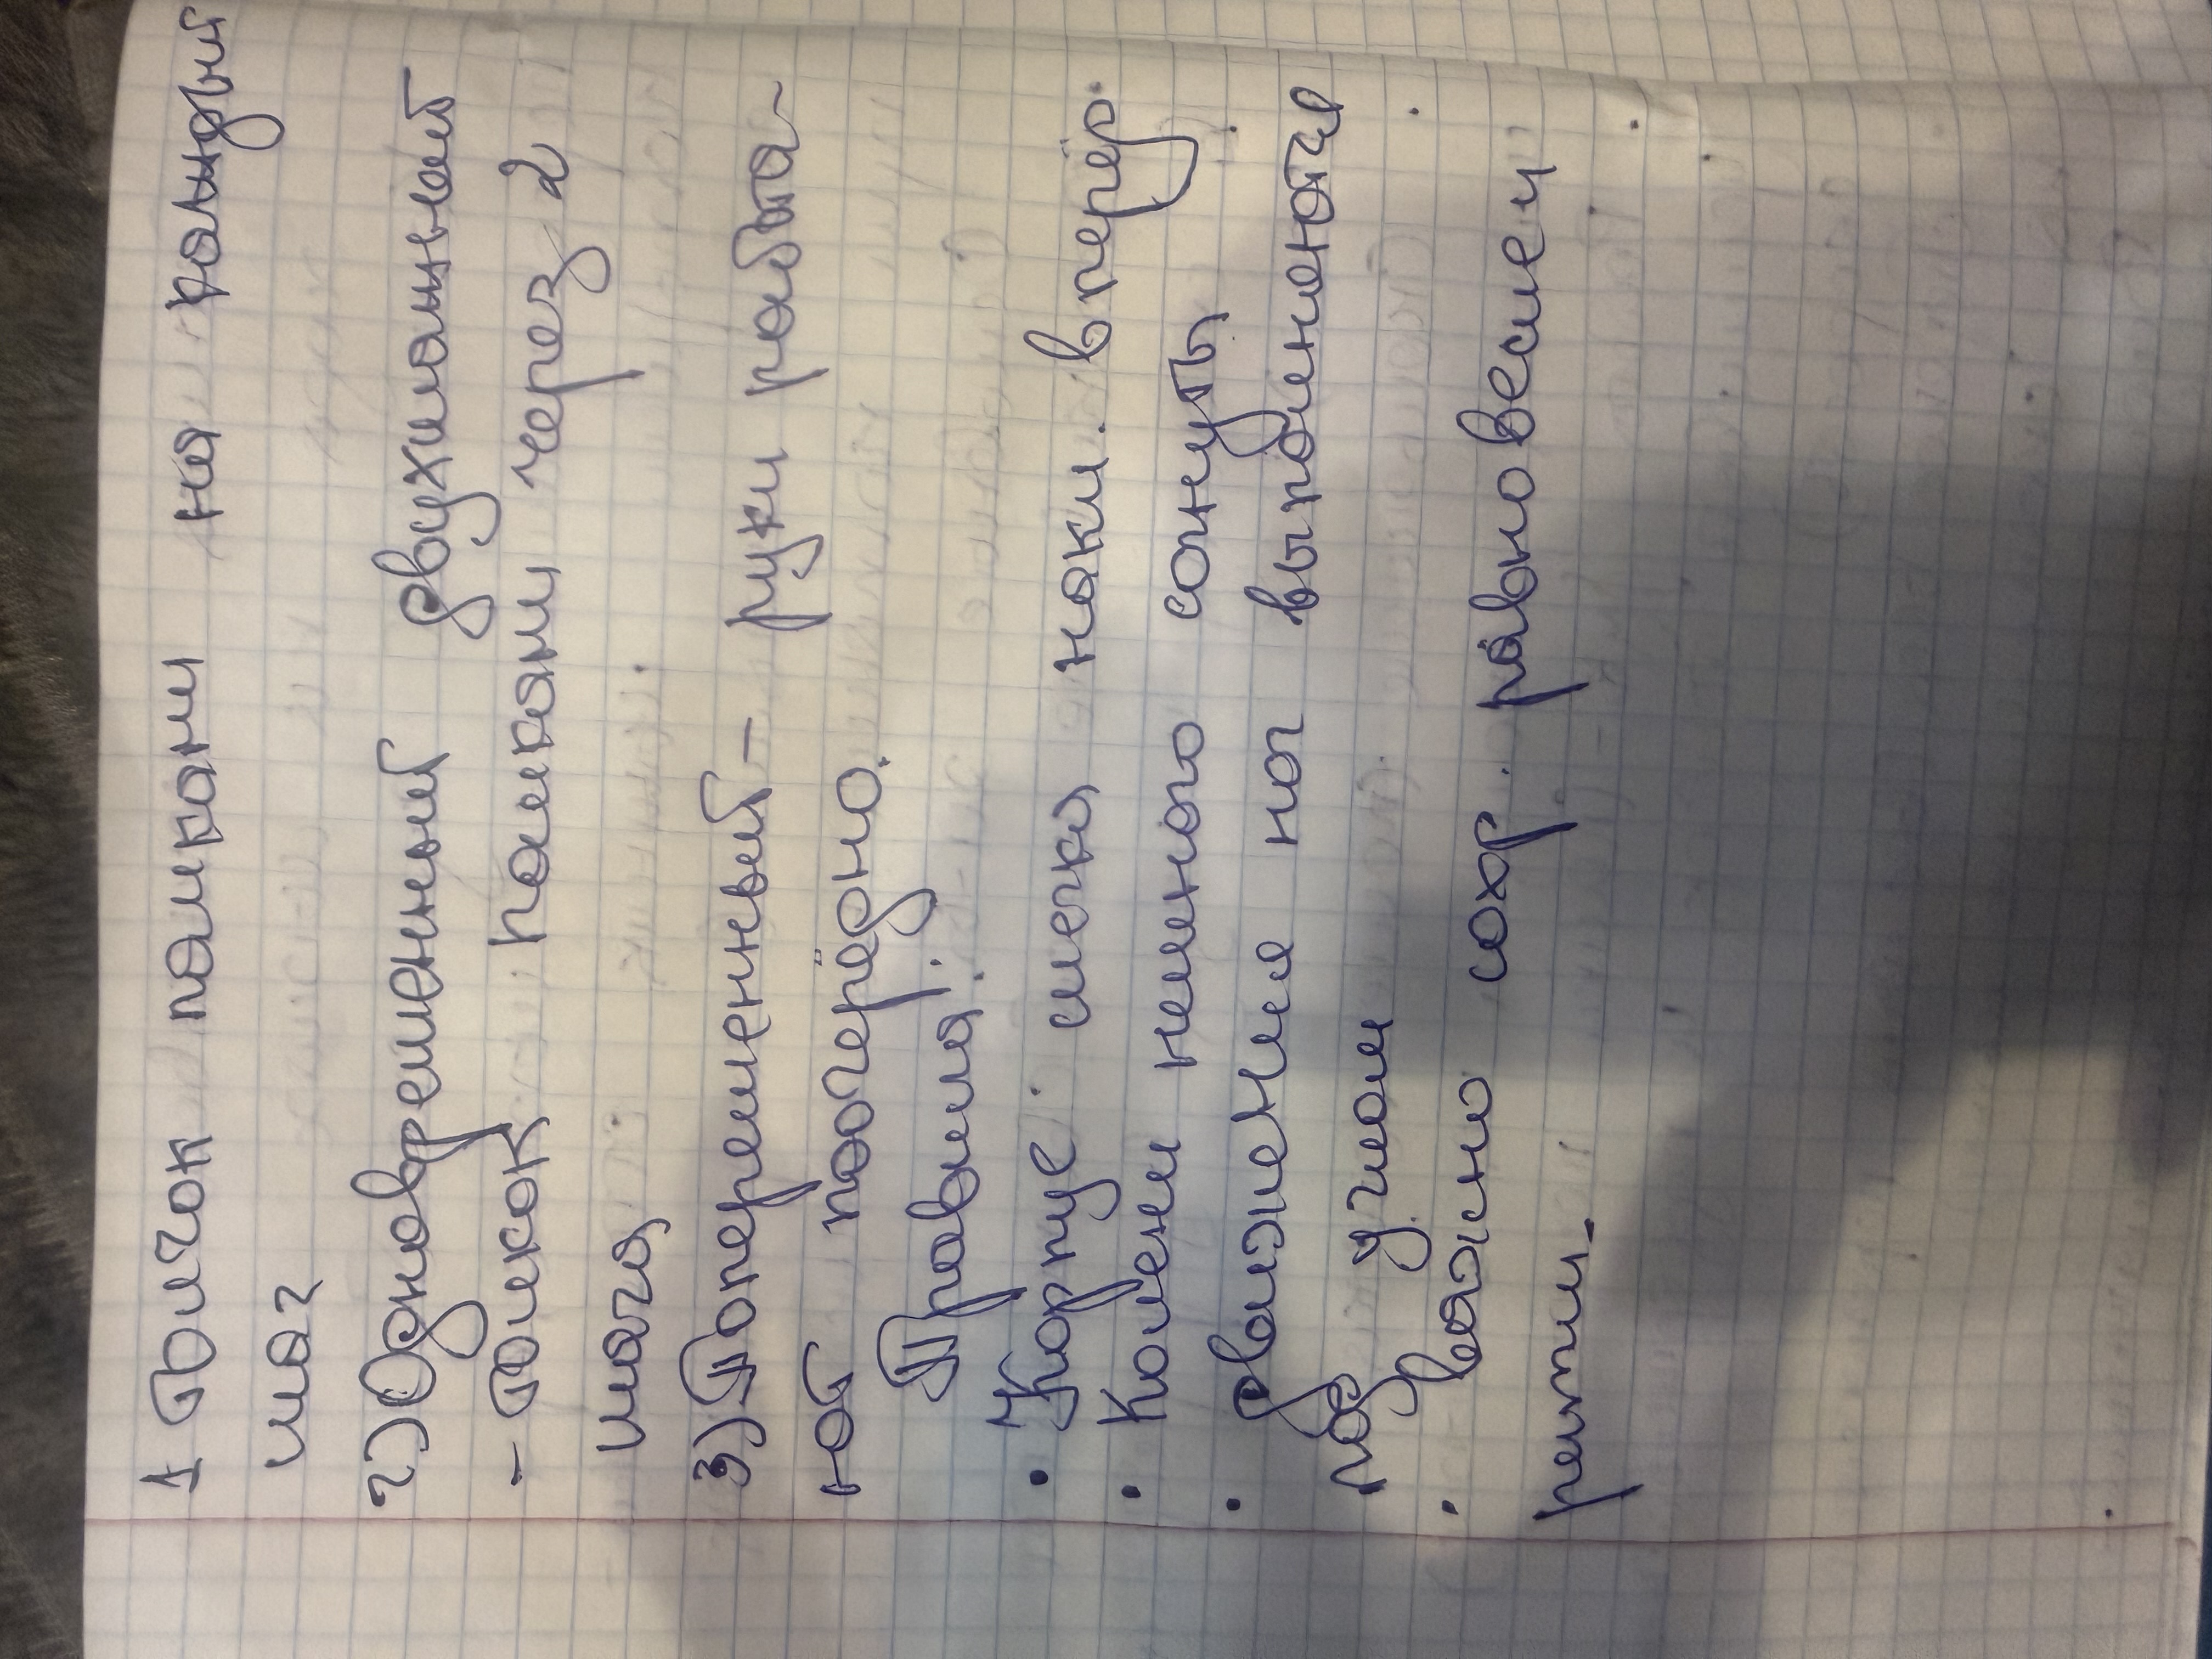 1 Толчок палками на каждый
шаг
2) Одновременный двухшажный
- Толкок палками через 2
шага
3) Попеременный - руки работа-
ют поочерёдно.
Правила:
• Корпус слегка накл. вперёд.
• Колени немного согнуты
• движение ног выполняются
под углом
• важно сохр. равновесие и
ритм.